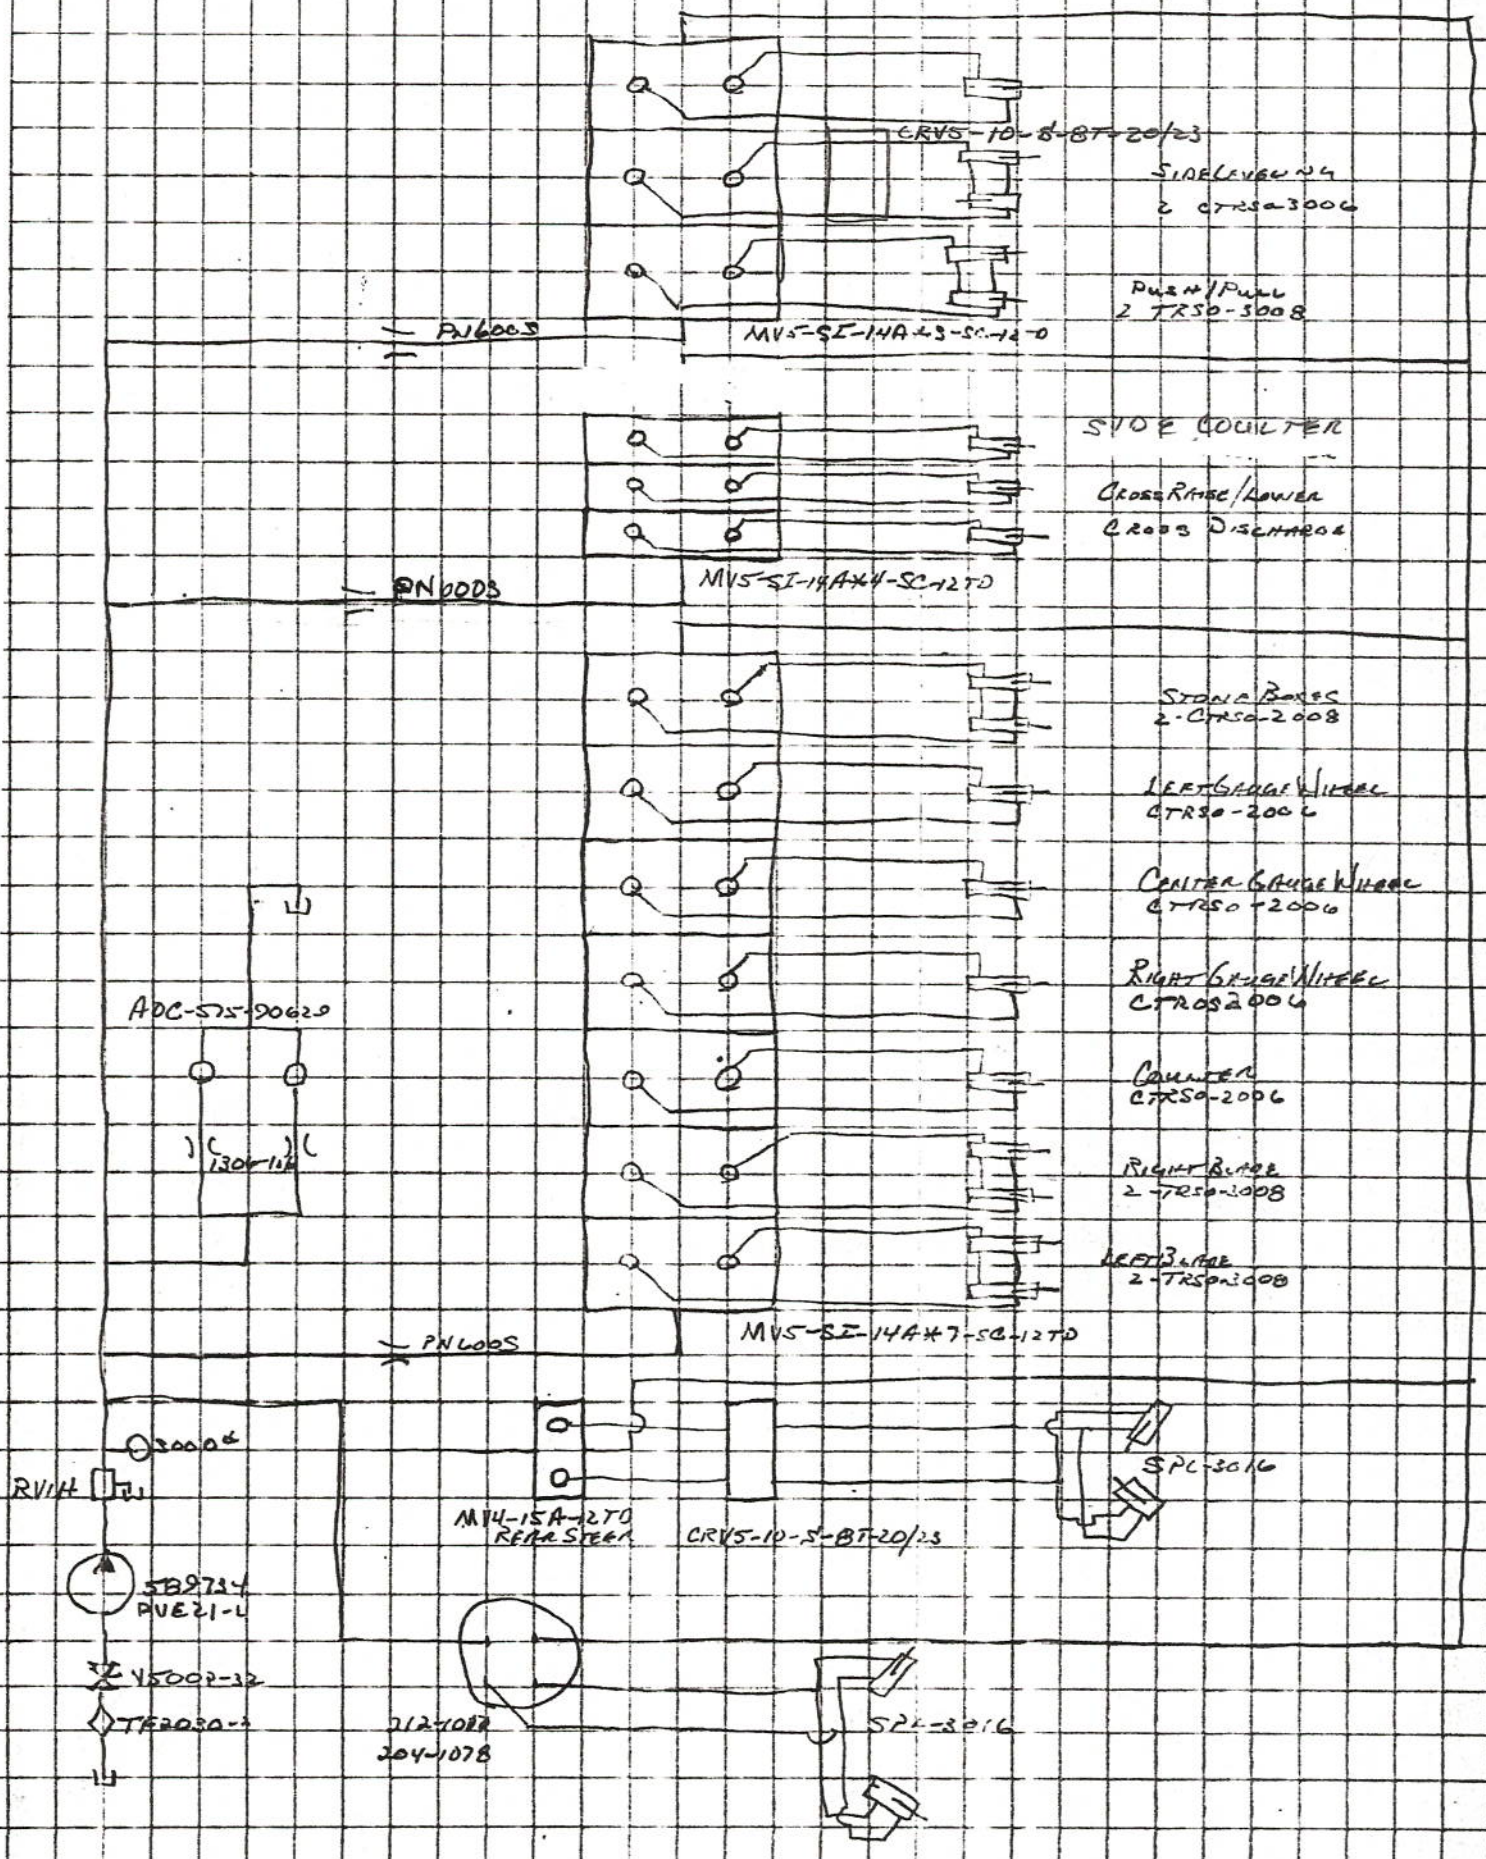 CRV5-10-S-BT-20/23
SIDELEVELING
2 CTRSO-3006
PUSH/PULL
2 TRSO-3008
PN600S
MV5-SI-14A*3-SC-12TD
SIDE COULTER
CROSS RAISE/LOWER
CROSS DISCHARGE
MV5-SI-14A*4-SC-12TD
PN600S
STONE BOXES
2-CTRSO-2008
LEFT GAUGE WHEEL
CTRSO-2006
CENTER GAUGE WHEEL
CTRSO-2006
RIGHT GAUGE WHEEL
CTROS2006
ADC-575-90629
COULTER
CTRSO-2006
RIGHT BLADE
2-TRSO-3008
LEFT BLADE
2-TRSO-3008
MV5-SI-14A*7-SC-12TD
PN600S
3000#
RV1H
SPL-3016
MV4-15A-12TD
REAR STEER
CRV5-10-S-BT-20/23
589734
PVE21-L
V5002-32
TF2030-
204-1078
SPL-3016